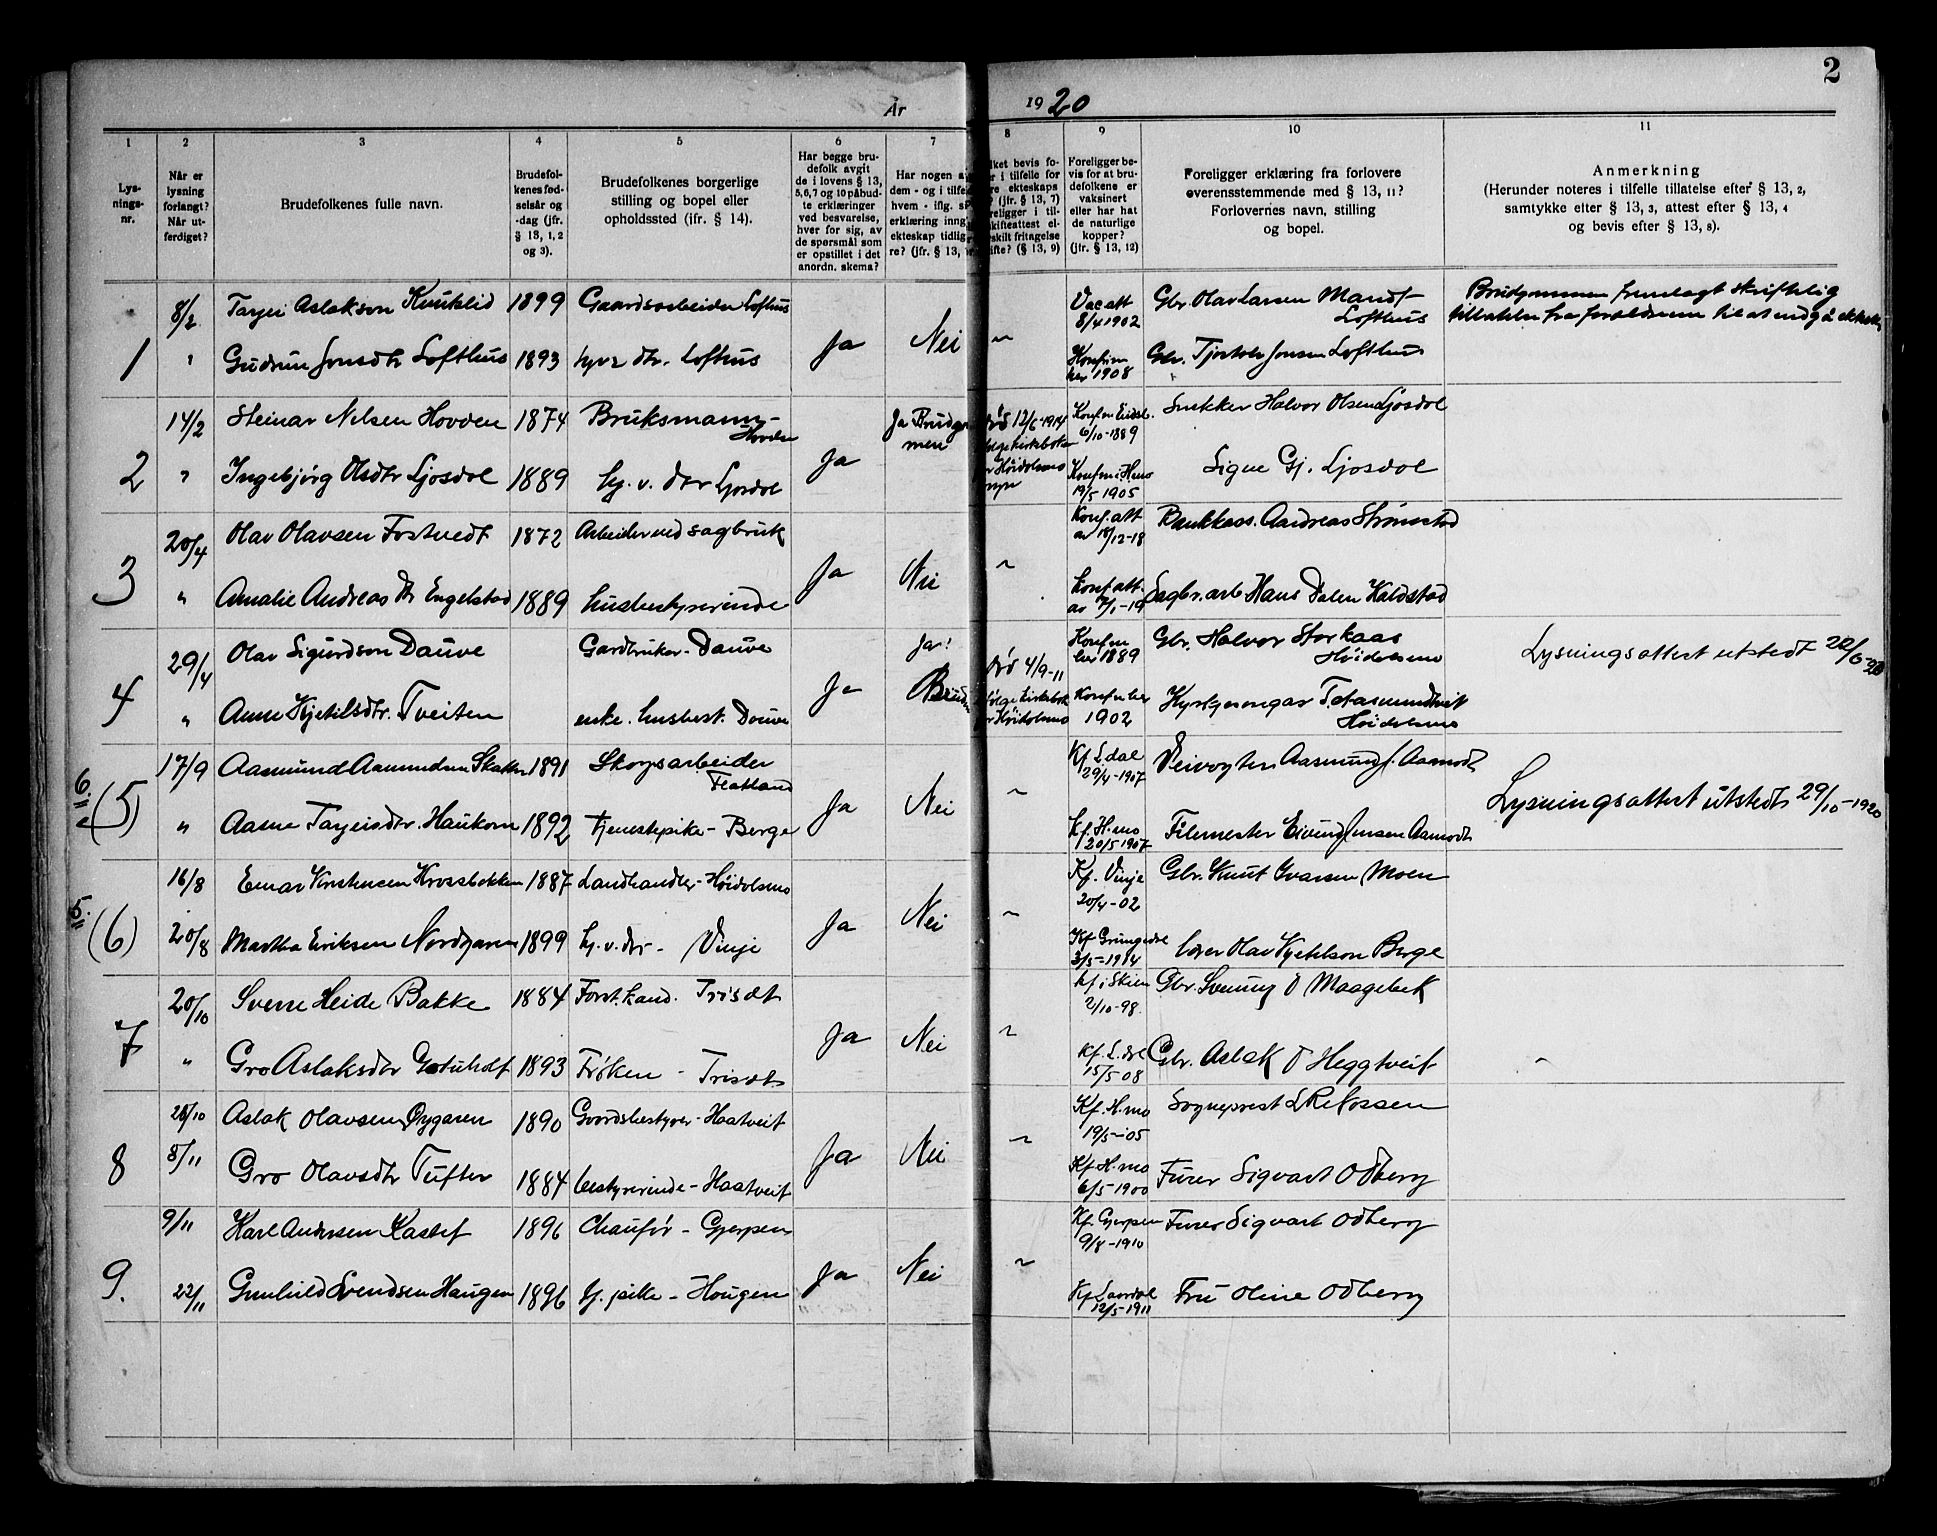 2
År
1920
1
Lys-
nings-
nr.
2
Når er
lysning
forlangt?
Når ut-
ferdiget?
3
Brudefolkenes fulle navn.
4
Brudefol-
kenes fød-
selsår og
-dag (jfr.
§ 13, 1, 2
og 3).
5
Brudefolkenes borgerlige
stilling og bopel eller
opholdssted (ifr. § 14).
6
Har begge bru-
defolk avgit
de i lovens § 13,
5, 6, 7 og 10 påbud-
te erklæringer
ved besvarelse,
hver for sig, av
de spørsmål som
er opstillet i det
anordn. skema?
7
Har nogen a
dem - og i tilfe
hvem - iflg. s
erklæring inng
ekteskap tidlig
re? (jfr. § 13,
8
lket bevis fo-
r i tilfelle for
re ekteskaps
? (jfr. § 13, 7)
religger i til-
kifteattest el-
skilt fritagelse
ifte? (§ 13, 9)
9
Foreligger be-
vis for at bru-
defolkene er
vaksinert
eller har hat
de naturlige
kopper?
(jfr. § 13, 12)
10
Foreligger erklæring fra forlovere
overensstemmende med § 13, 11?
Forlovernes navn, stilling
og bopel.
11
Anmerkning
(Herunder noteres i tilfelle tillatelse efter § 13, 2,
samtykke efter § 13, 3, attest efter § 13, 4
og bevis efter § 13, 8).
8/2 Tarjei Aslakson Kvuklid 1899 Gaardsarbeider Lofthus Vac att 8/4 1902 Gbr. Olav Larsen Mandt Lofthus
Brudgommen fremlagt skriftelig
tillatelse fra forældrerne til at indgå
1 " Gudrun Jonsdtr Lofthus 1893 hjv. dtr. Lofthus Ja Nei ~ Konfirm her 1908 Gbr. Tjostolv Jonsen Lofthus
14/2 Steinar Nelsen Hovden 1874 Bruksmann Hovden Ja Brudgo
men død 12/6-1914 Konf. 6/10-1889 Snekker Halvor Olsen Ljosdal
2 " Ingebjörg Olsdtr Ljosdal 1889 hj. v. dtr Ljosdal Ja følge kirkeboken Høidalsmo Konfirm i H.mo 19/5 1905 Signe Gj. Ljosdal
20/4 Olav Olavsen Fostvedt 1872 Arbeider ved sagbruk Konf. att av 18/12-18 Bankkass. Andreas Strömstad
3 " Amalie Andreas dtr Engelstad 1889 husbestyrerinde Ja Nei ~ Konf att. av 7/1-19 Sagbr. arb Hans Dalen Kaldstad
29/4 Olav Sigurdson Dauve Gardbruker - Dauve Ja! død 4/9-11 Konfirm her 1889 Gbr. Halvor Storkaas Høidalsmo
Lysningsattest utstedt 22/6-20
4 " Anne Kjetilsdtr. Tveiten enke. husbest. Dauve Ja følge kirkebok Høidalsmo Konfirm her 1902 Kyrkjesongar T Aasmundtveit Høidalsmo
6. (5) 17/9 Aasmund Aanundsen Skatter 1891 Skogsarbeider Flatland Kf L.dal 29/4-1907 Veivogter Aasmund J. Aamodt
" Aasne Tarjeisdtr. Haukom 1892 Tjenestepike - Berge Ja Nei ~ Kf. H.mo 20/5 1907 Filemester Eivind Jensen Aamodt
Lysningsattest utstedt 29/10-1920
16/8 Einar Kristensen Krossbakken 1887 Landhandler - Høidalsmo Kf. Vinje 20/4-02 Gbr. Knut Ivarsen Moen
5. (6) 20/8 Martha Eriksen Nordgaren 1899 hj. v. dtr - Vinje Ja Nei ~ Kf Grungedal 3/5-1914 lærer Olav Kjetilson Berge
20/10 Sverre Heide Bakke 1884 Forst. kand. Trisæt Kf i Skien 2/10-98. Gbr. Sveinung O Maagebek
7 " Gro Aslaksdtr Gotuholt 1893 Frøken - Trisæt Ja Nei ~ Kf. L.dal 15/5-08 Gbr. Aslak O Heggtveit
28/10 Aslak Olavsen Øygaren 1890 Gaardsbestyrer - Haatveit Kf. H.mo 19/5-05 Sogneprest L Refossen
8 8/11 Gro Olavsdtr Tufter 1884 bestyrerinde - Haatveit Ja Nei ~ Kf H.mo 6/5 1900 Furer Sigvart Odberg
9/11 Karl Andersen Kastet 1896 Chauför - Gjerpen Kf. Gjerpen 9/8-1910 Furer Sigvart Odberg
9. 22/11 Gunhild Svendsen Haugen 1896 tj. pike - Haugen Ja Nei ~ Kf Laardal 12/5-1911 Fru Oline Odberg